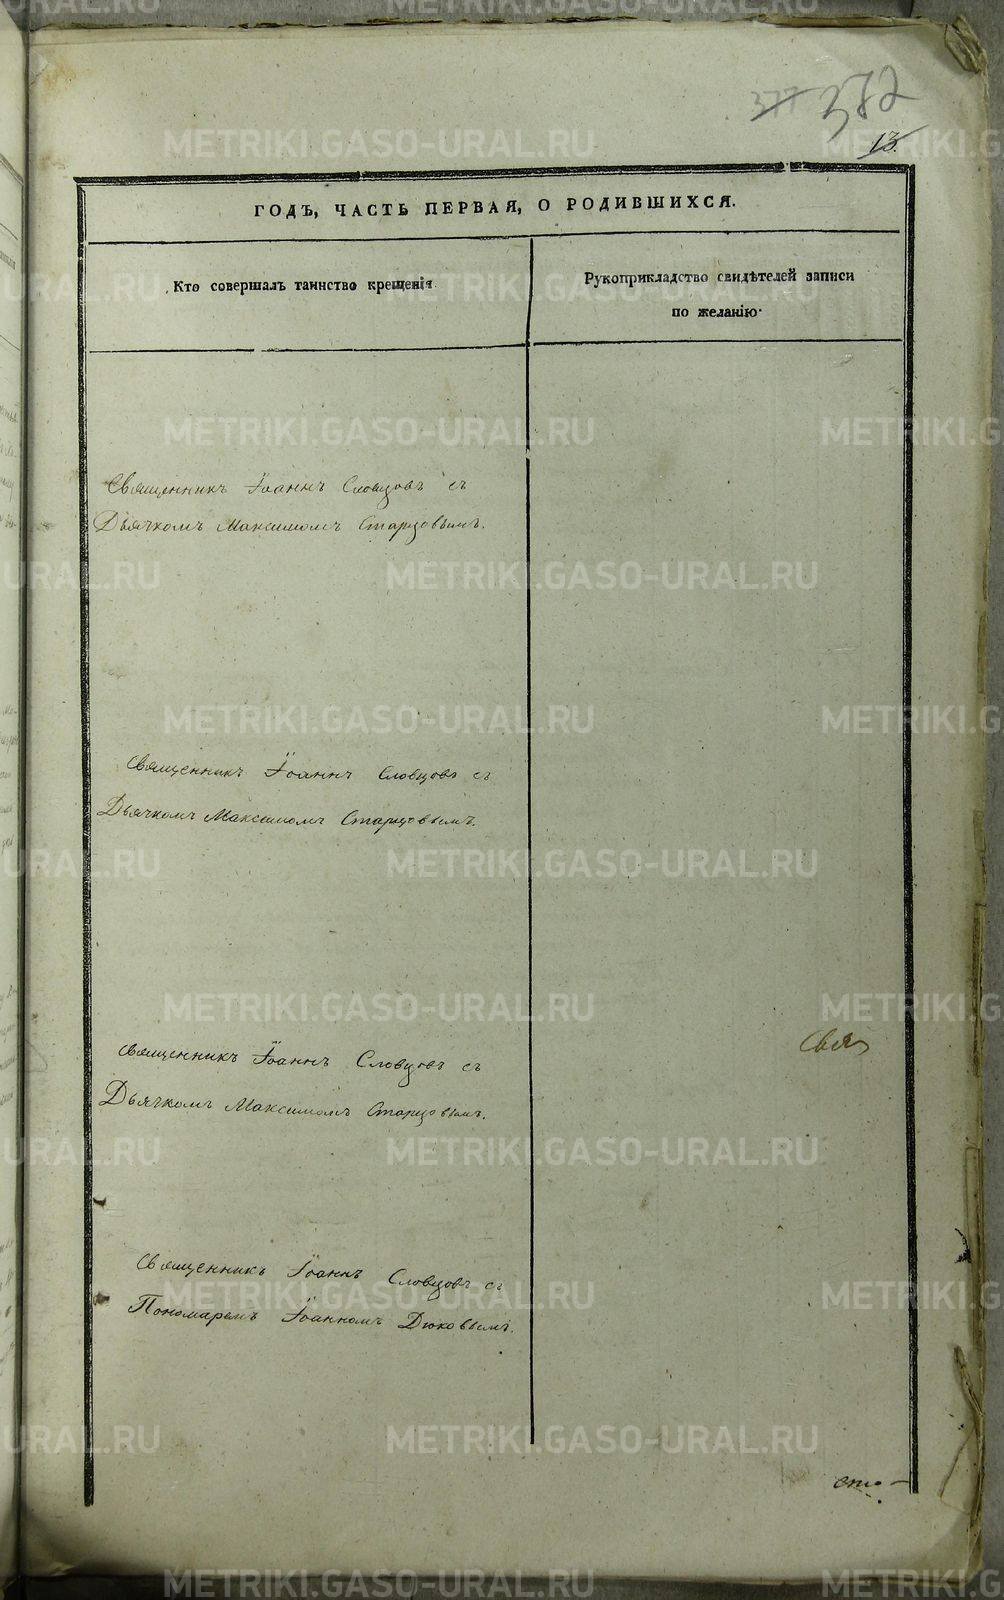 377 372
13.
ГОДЪ, ЧАСТЬ ПЕРВАЯ, О РОДИВШИХСЯ.
Кто совершалъ таинство крещенія
Рукоприкладство свидѣтелей записи
по желанію.
Священникъ Іоаннъ Словцовъ съ
Дьячкомъ Максимомъ Старцовымъ.
Священникъ Іоаннъ Словцовъ съ
Дьячкомъ Максимомъ Старцовымъ.
Священникъ Іоаннъ Словцовъ съ
Дьячкомъ Максимомъ Старцовымъ.
Свя
Священникъ Іоаннъ Словцовъ съ
Пономаремъ Іоанномъ Дюковымъ.
METRIKI.GASO-URAL.RU